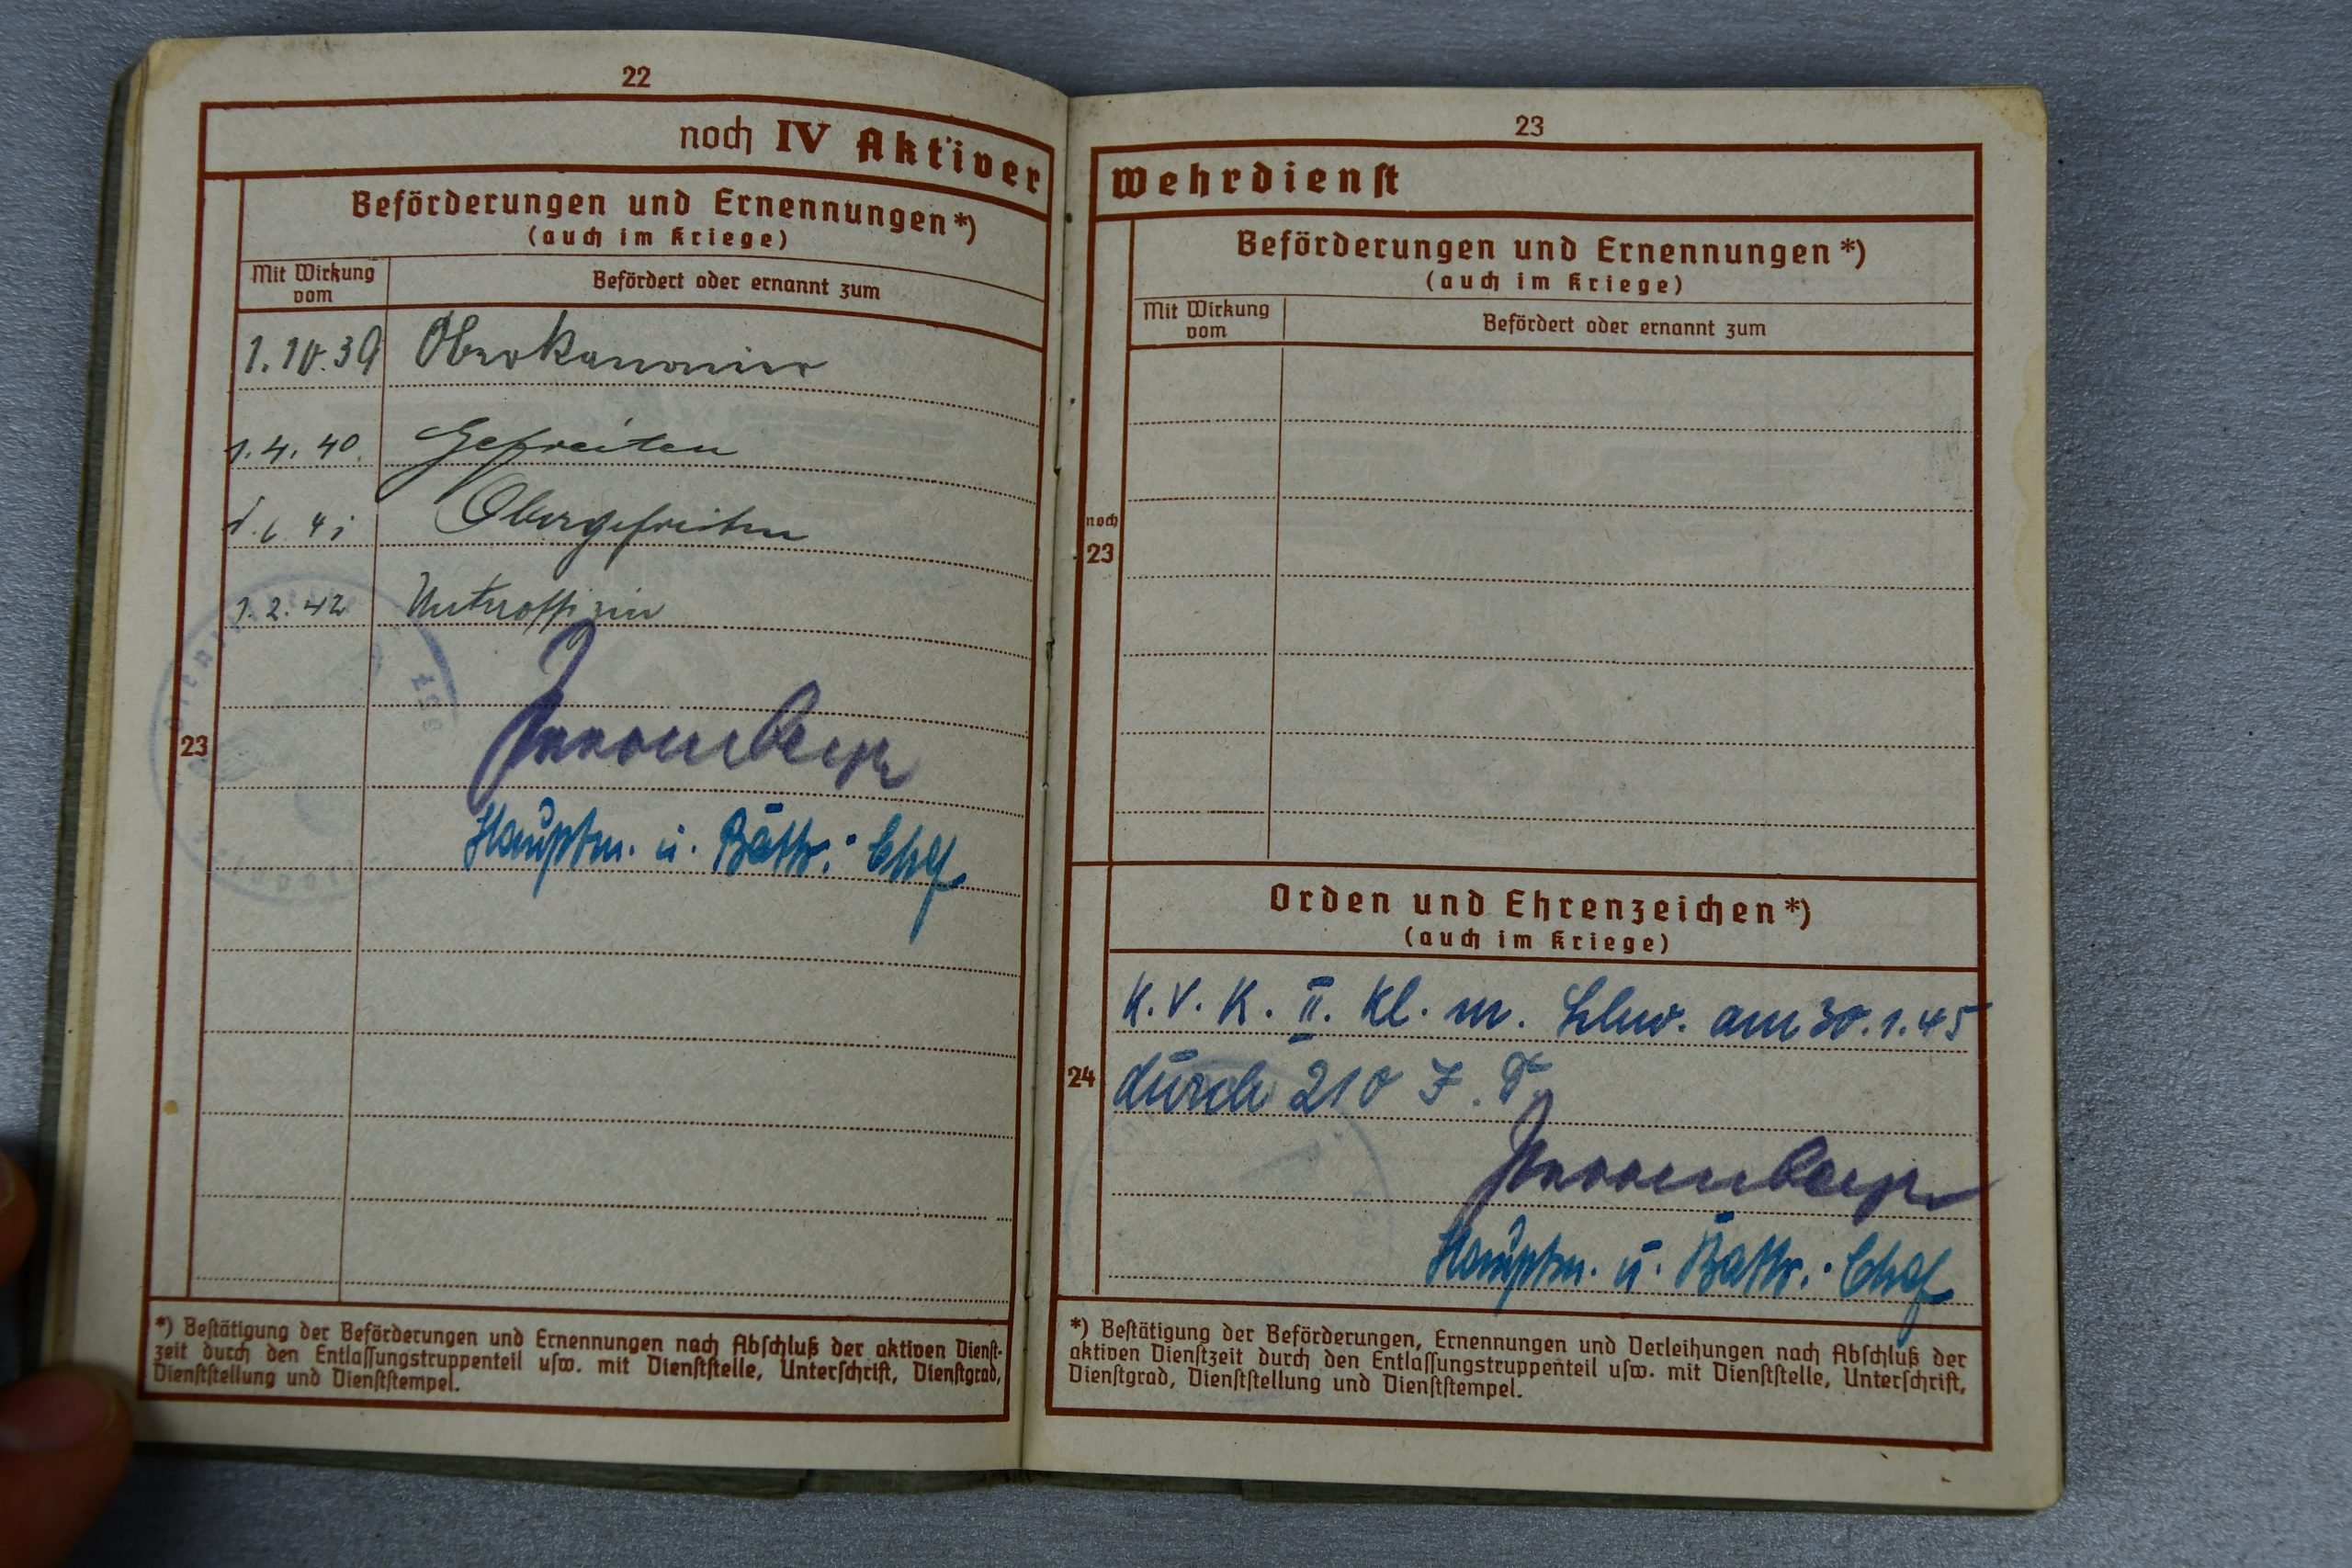 22
noch IV Aktiver
Beförderungen und Ernennungen*)
(auch im Kriege)
Mit Wirkung vom
Befördert oder ernannt zum
1.10.39 Oberkanonier
1.4.40. Gefreiten
Obergefreiten
1.2.42 Unteroffizier
23
Hauptm. u. Battr.-Chef
*) Bestätigung der Beförderungen und Ernennungen nach Abschluß der aktiven Dienst-
zeit durch den Entlassungstruppenteil usw. mit Dienststelle, Unterschrift, Dienstgrad,
Dienststellung und Dienststempel.
23
Wehrdienst
Beförderungen und Ernennungen*)
(auch im Kriege)
Mit Wirkung vom
Befördert oder ernannt zum
noch
23
Orden und Ehrenzeichen*)
(auch im Kriege)
K.V.K. II. Kl. m. Schw. am 30.1.45
24
durch 210 I.D.
Hauptm. u. Battr.-Chef
*) Bestätigung der Beförderungen, Ernennungen und Verleihungen nach Abschluß der
aktiven Dienstzeit durch den Entlassungstruppenteil usw. mit Dienststelle, Unterschrift,
Dienstgrad, Dienststellung und Dienststempel.